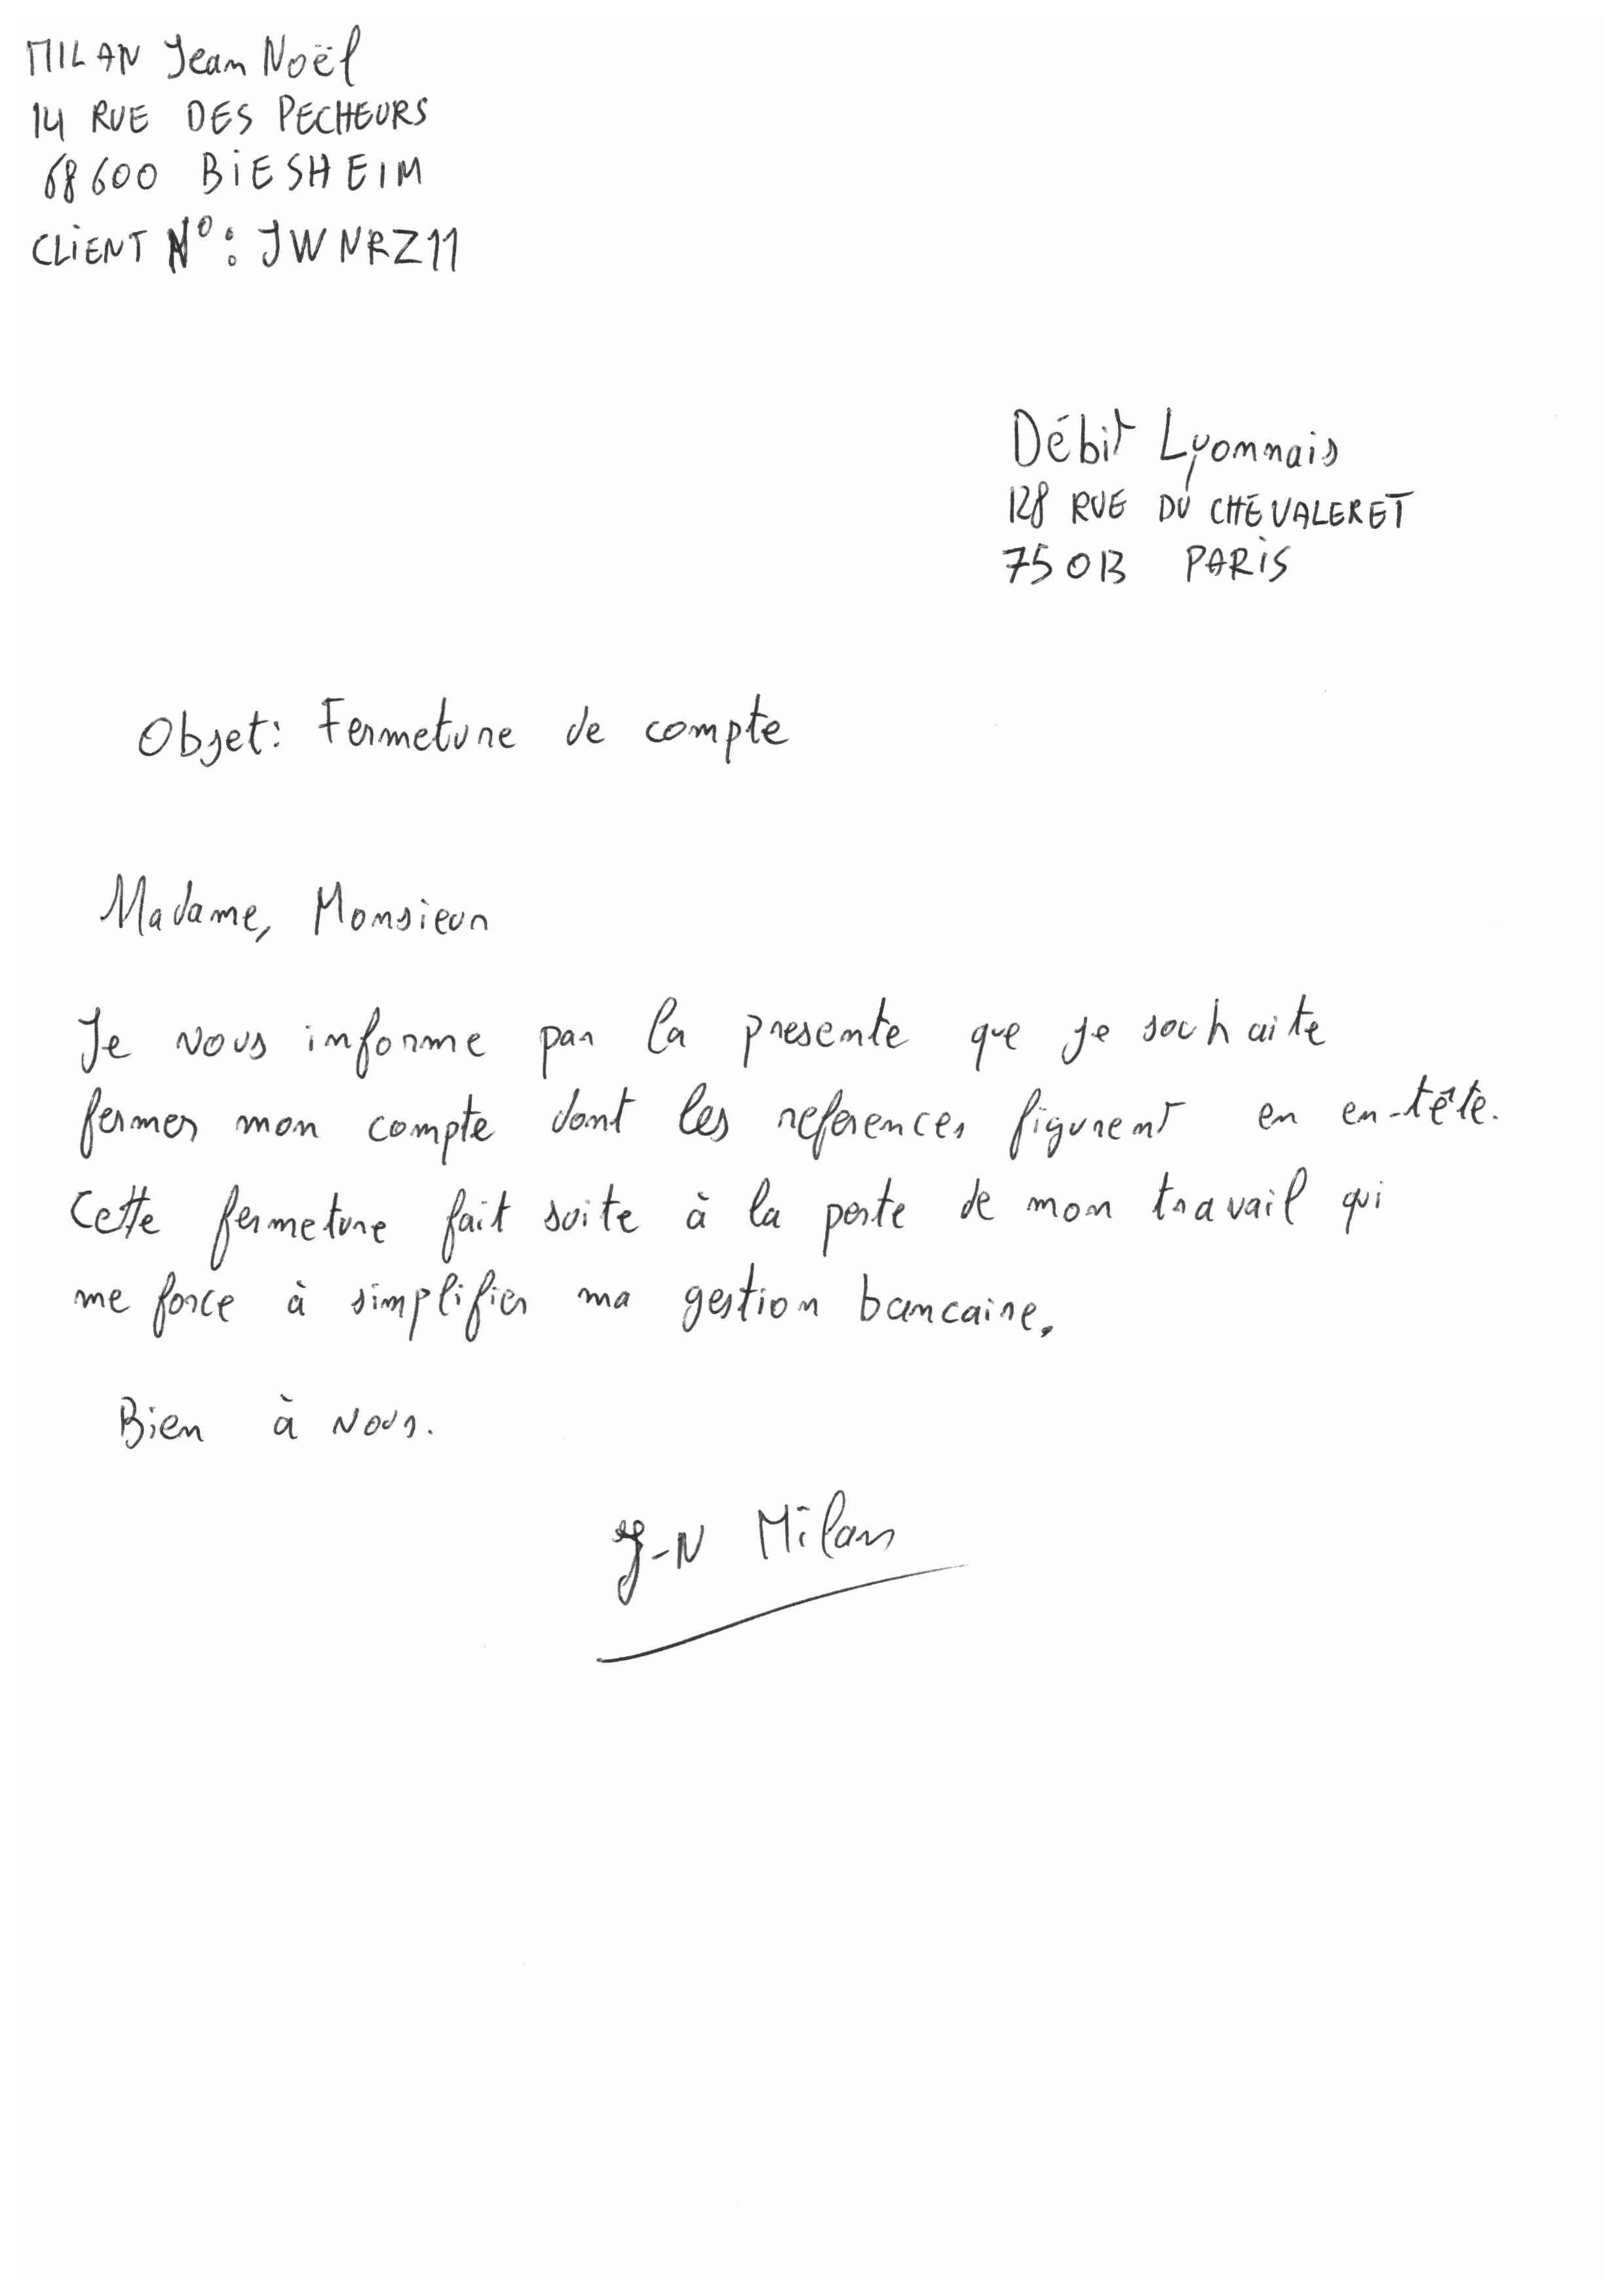 MILAN Jean Noël
14 RUE DES PECHEURS
68600 BIESHEIM
CLIENT N° : JWNRZ11
Débit Lyonnais
128 RUE DU CHEVALERET
75013 PARIS
Objet: Fermeture de compte
Madame, Monsieur
Je vous informe par la presente que je souhaite
fermer mon compte dont les references figurent en en-tête.
Cette fermeture fait suite à la perte de mon travail qui
me force à simplifier ma gestion bancaire.
Bien à vous.
J-N Milan